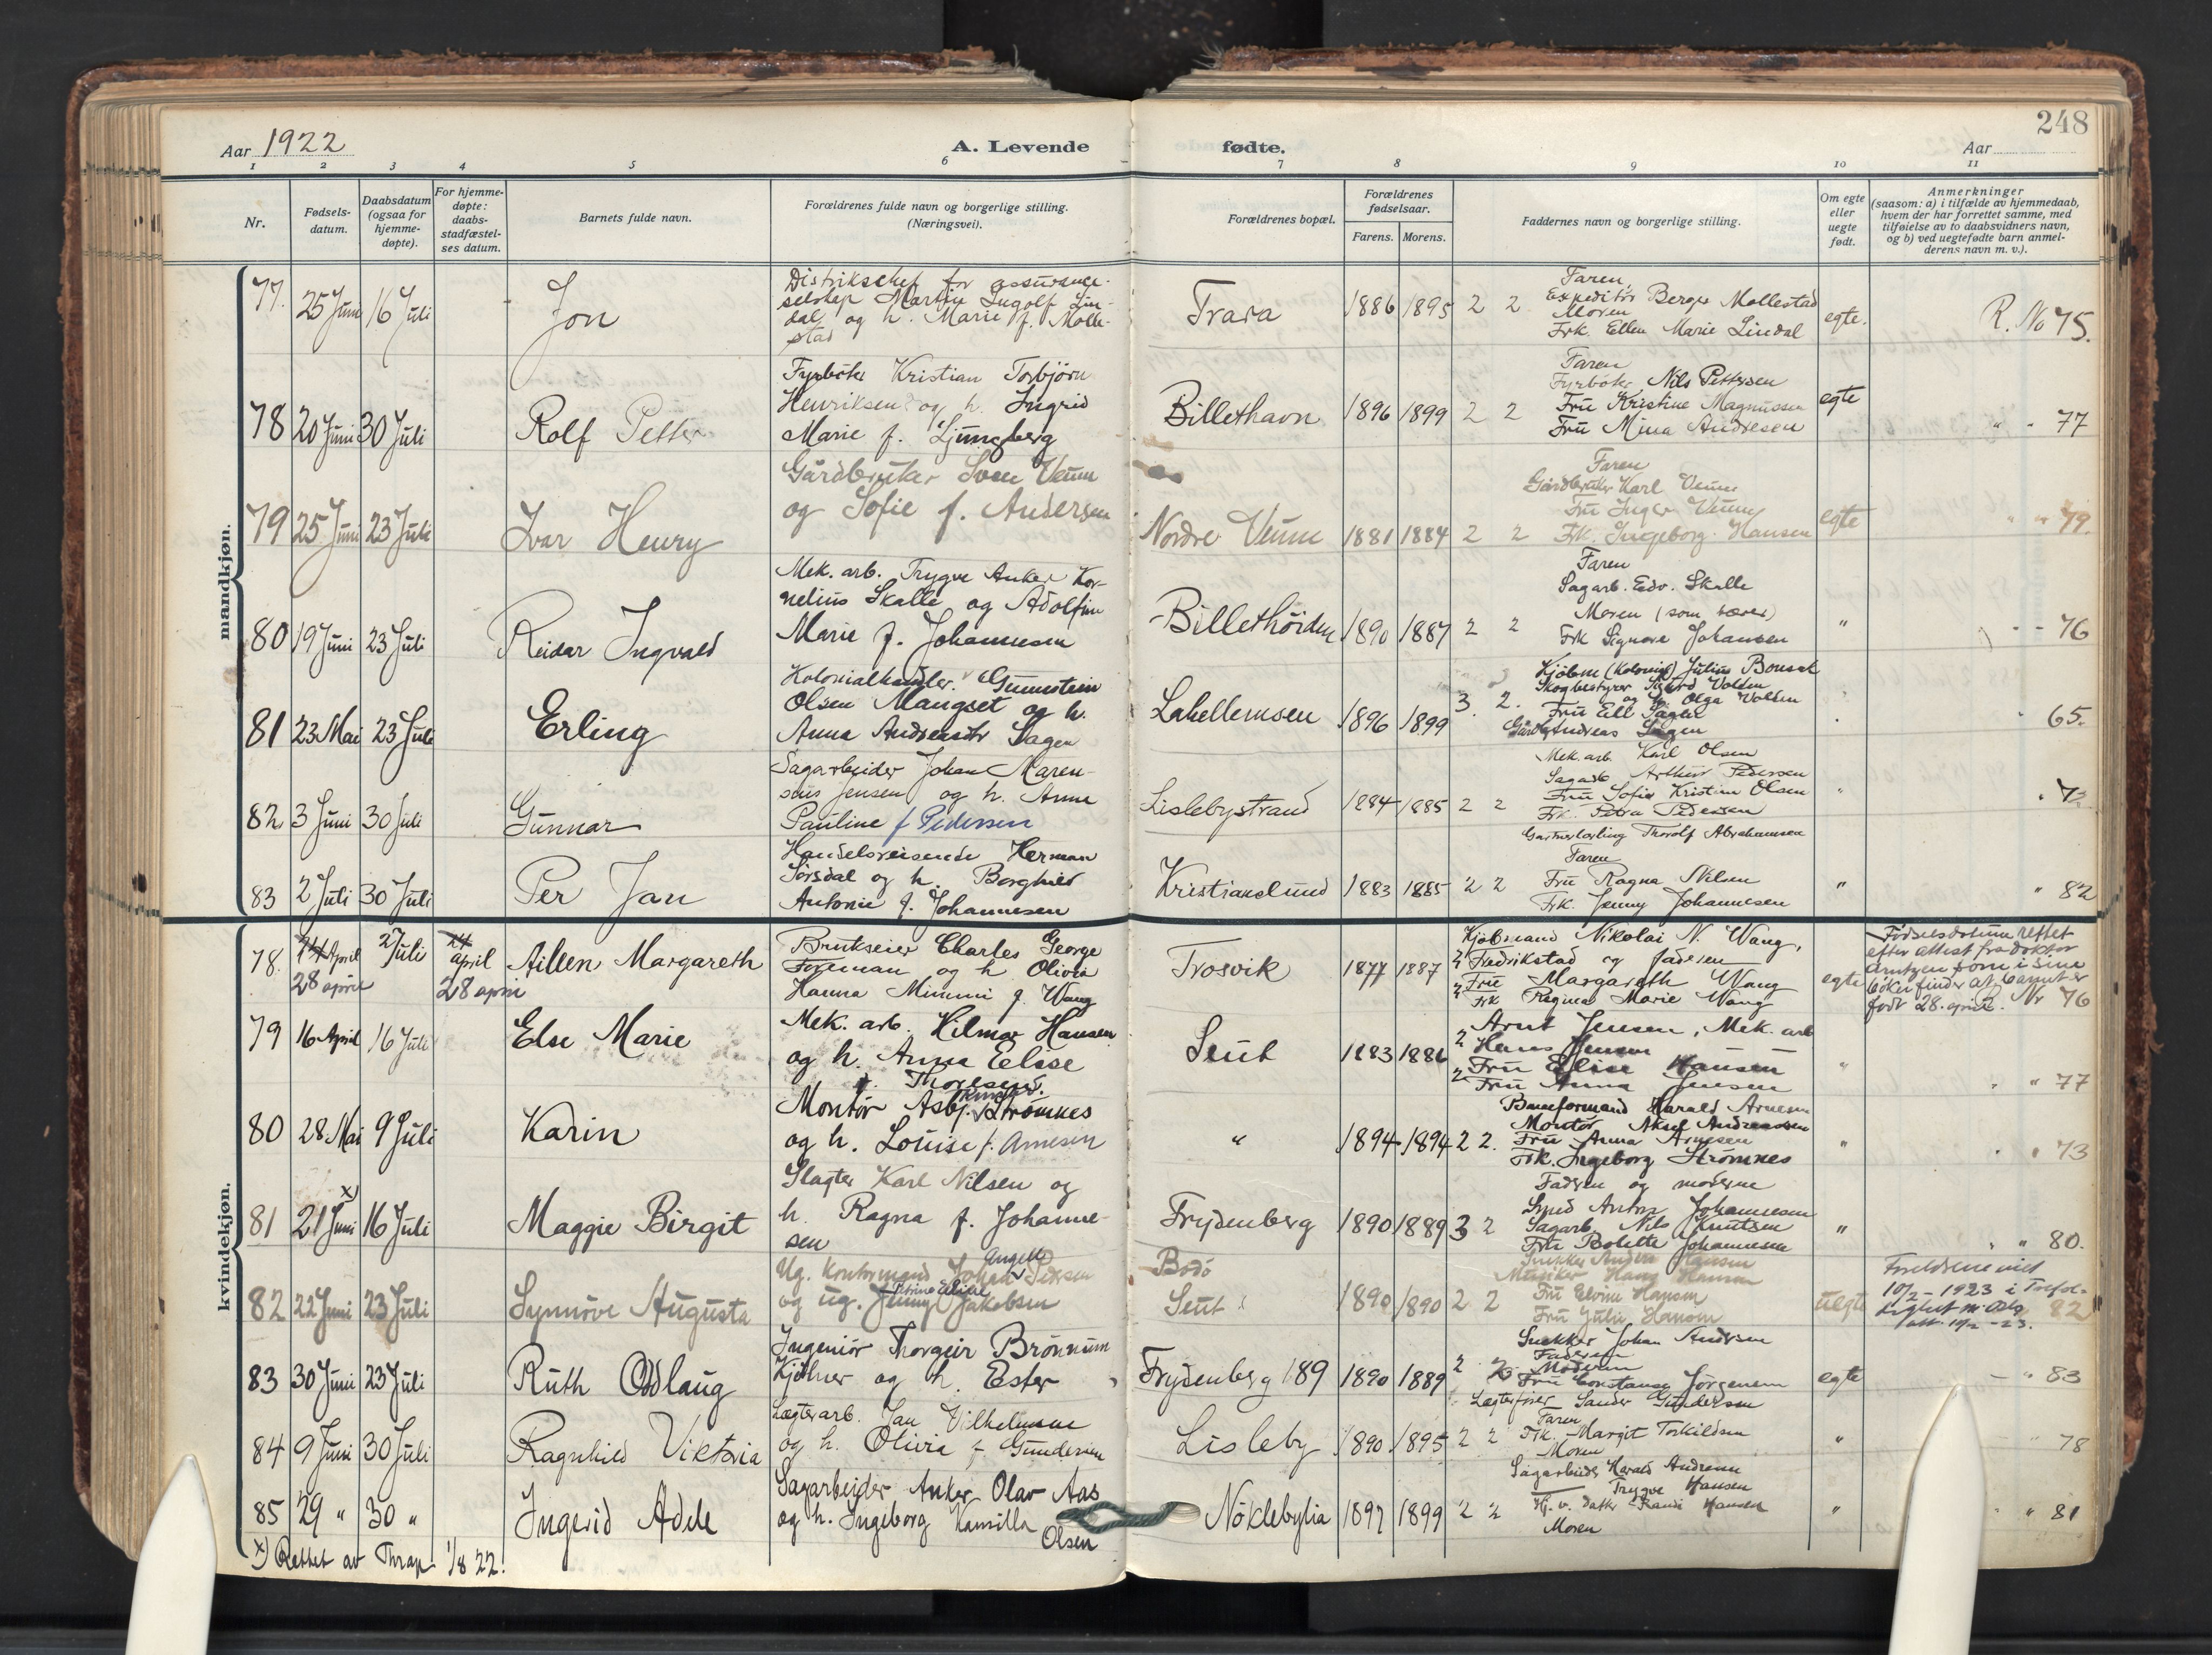 248
Aar 1922
A. Levende
fødte.
Aar
1 2 3 4 5 6 7 8 9 10 11
Nr.
Fødsels-
datum.
Daabsdatum
(ogsaa for
hjemme-
døpte).
For hjemme-
døpte:
daabs-
stadfæstel-
ses datum.
Barnets fulde navn.
Forældrenes fulde navn og borgerlige stilling.
(Næringsvei).
Forældrenes bopæl.
Forældrenes
fødselsaar.
Farens. Morens.
Faddernes navn og borgerlige stilling.
Om egte
eller
uegte
født.
Anmerkninger
(saasom: a) i tilfælde av hjemmedaab,
hvem der har forrettet samme, med
tilføielse av to daabsvidners navn,
og b) ved uegtefødte barn anmel-
derens navn m. v.).
mandkjøn.
77. 25 Juni 16 Juli
Jon
Distrikschef for assurance-
selskap Martin Ingolf Lin-
dal og h. Marie f. Molle-
stad
Trara
1886 1895 2 2
Faren
Expeditør Berger Mollestad
Moren
Frk. Ellen Marie Lindal
egte.
R. No 75.
78 20 Juni 30 Juli
Rolf Petter
Fyrbøter Kristian Torbjørn
Henriksen og h. Ingrid
Marie f. Ljungberg
Billethavn
1896 1899 2 2
Faren
Fyrbøter Nils Pettersen
Fru Kristine Magnussen
Fru Mina Andresen
egte
" " 77
79 25 Juni 23 Juli
Ivar Henry
Gårdbruker Sven Veum
og Sofie f. Andersen
Nordre Veum
1881 1884 2 2
Faren
Gårdbruker Karl Veum
Fru Inger Veum
Frk. Ingeborg Hansen
egte
" " 79.
80 19 Juni 23 Juli
Reidar Ingvald
Mek. arb. Trygve Anker Kor-
nelius Skalle og Adolfine
Marie f. Johannesen
Billethörden
1890 1887 2 2
Faren
Sagarb. Edv. Skalle
Moren (som bærer)
Frk Signora Johansen
"
" " 76
81 23 Mai 23 Juli
Erling
Kolonialhandler Gunnstein
Olsen Mangset og h.
Anna Andreasdtr Sagen
Lahellemsen
1896 1899
3. 2.
Kjöbm (Kolonial) Julius
Skogbestyrer Sigurd Volden
og Olga Volden
Fru
Gårdb Andreas Sagen
" 65.
82 3 Juni 30 Juli
Gunnar
Sagarbeider Johan Maren-
sius Jensen og h. Anne
Pauline f Pedersen
Lislebystrand
1884 1885 2 2
Mek. arb. Karl Olsen
Sagarb Arthur Pedersen
Fru Sofie Kristine Olsen
Frk. Petra Pedersen
"
83 2 Juli 30 Juli
Per Jan
Handelsreisende Herman
Sörsdal og h. Borghild
Antonie f. Johannesen
Kristianslund
1883 1885 2 2
Gartnerlærling Thorolf Abrahamsen
Faren
Fru Ragna Nilsen
Frk. Jenny Johannesen
"
" 82
kvindekjøn.
78. 24 April 2 Juli 24 april
28 april 28 april
Aileen Margareth
Brukseier Charles George
Foreman og h Olivia
Hanna Mimmi f. Wang
Trosvik
1877 1887
Kjöbmand Nikolai N. Wang,
2 Fredrikstad og faderen
2 Fru Margareth Wang
2 Frk Regina Marie Wang
egte
Födselsdatum rettet
efter attest fra doktor
Arntzen som i sine
böker finder at barnet er
født 28. april. R. Nr 76
79 16 April 16 Juli
Else Marie
Mek. arb. Hilmar Hansen
og h. Anna Elise
f. Thoresen.
Seut
1883 1886
Arnt Jensen, Mek. arb
2 Hans Jensen
Fru Elise Hansen
2 Fru Anna Jensen
"
" " 77
80 28 Mai 9 Juli
Karin
Montør Asbj. Strømnes
og h. Louise f. Arnesen
"
1894 1894 2 2.
Baneformand Harald Arnesen
Montør Aksel Andreassen
Fru Anna Arnesen
Frk. Ingeborg Strømnes
Fadren og moderne
"
" " 73
81 21 x) Juni 16 Juli
Maggie Birgit
Slagter Karl Nilsen og
h. Ragna f. Johanne-
sen
Frydenberg
1890 1889 3 2
Anton Johannesen
Sagarb. Nils Knutsen
Fru Bolette Johannesen
"
" " 80.
82 22 Juni 23 Juli
Synnöve Augusta
Ug. Kontormand Johan Angell Pedersen
og ug. Jenny Jakobsen
Bodö
Seut
1890 1890 2 2
Snekker Anders Hansen
Musiker Hans Hansen
Fru Elvine Hansen
Fru Julie Hansen
uegte
Foreldrene viet
10/2 - 1923 i Trefol-
att. 10/2 - 23. 82
83 30 Juni 23 Juli
Ruth Oddlaug
Ingeniør Thorgeir Brönnum
Kjölner og h. Ester
Frydenberg 189
1890 1889 2 2
Snekker Johan Andersen
Faderen
Moderen
Fru Constanse Jörgensen
egte
" 83
84 9 Juni 30 Juli
Ragnhild Viktoria
Lægterarb. Jan Vilhelmsen
og h. Olivia f Gundersen
Lisleby
1890 1895 2 2
Lægterfører Sander Gundersen
Faren
Frk. Margit Torkildsen
Moren
"
" 78
85 29 " 30 "
Ingerid Adele
Sagarbeider Anker Olav Aas
og h. Ingeborg Kamilla
Olsen
Nöklebylia
1897 1899 2 2
Sagarbeider Harald Andresen
Trygve Hansen
Hj. v. datter Randi Hansen
Moren
"
" " 81
x) Rettet av Thrap 1/8 22.